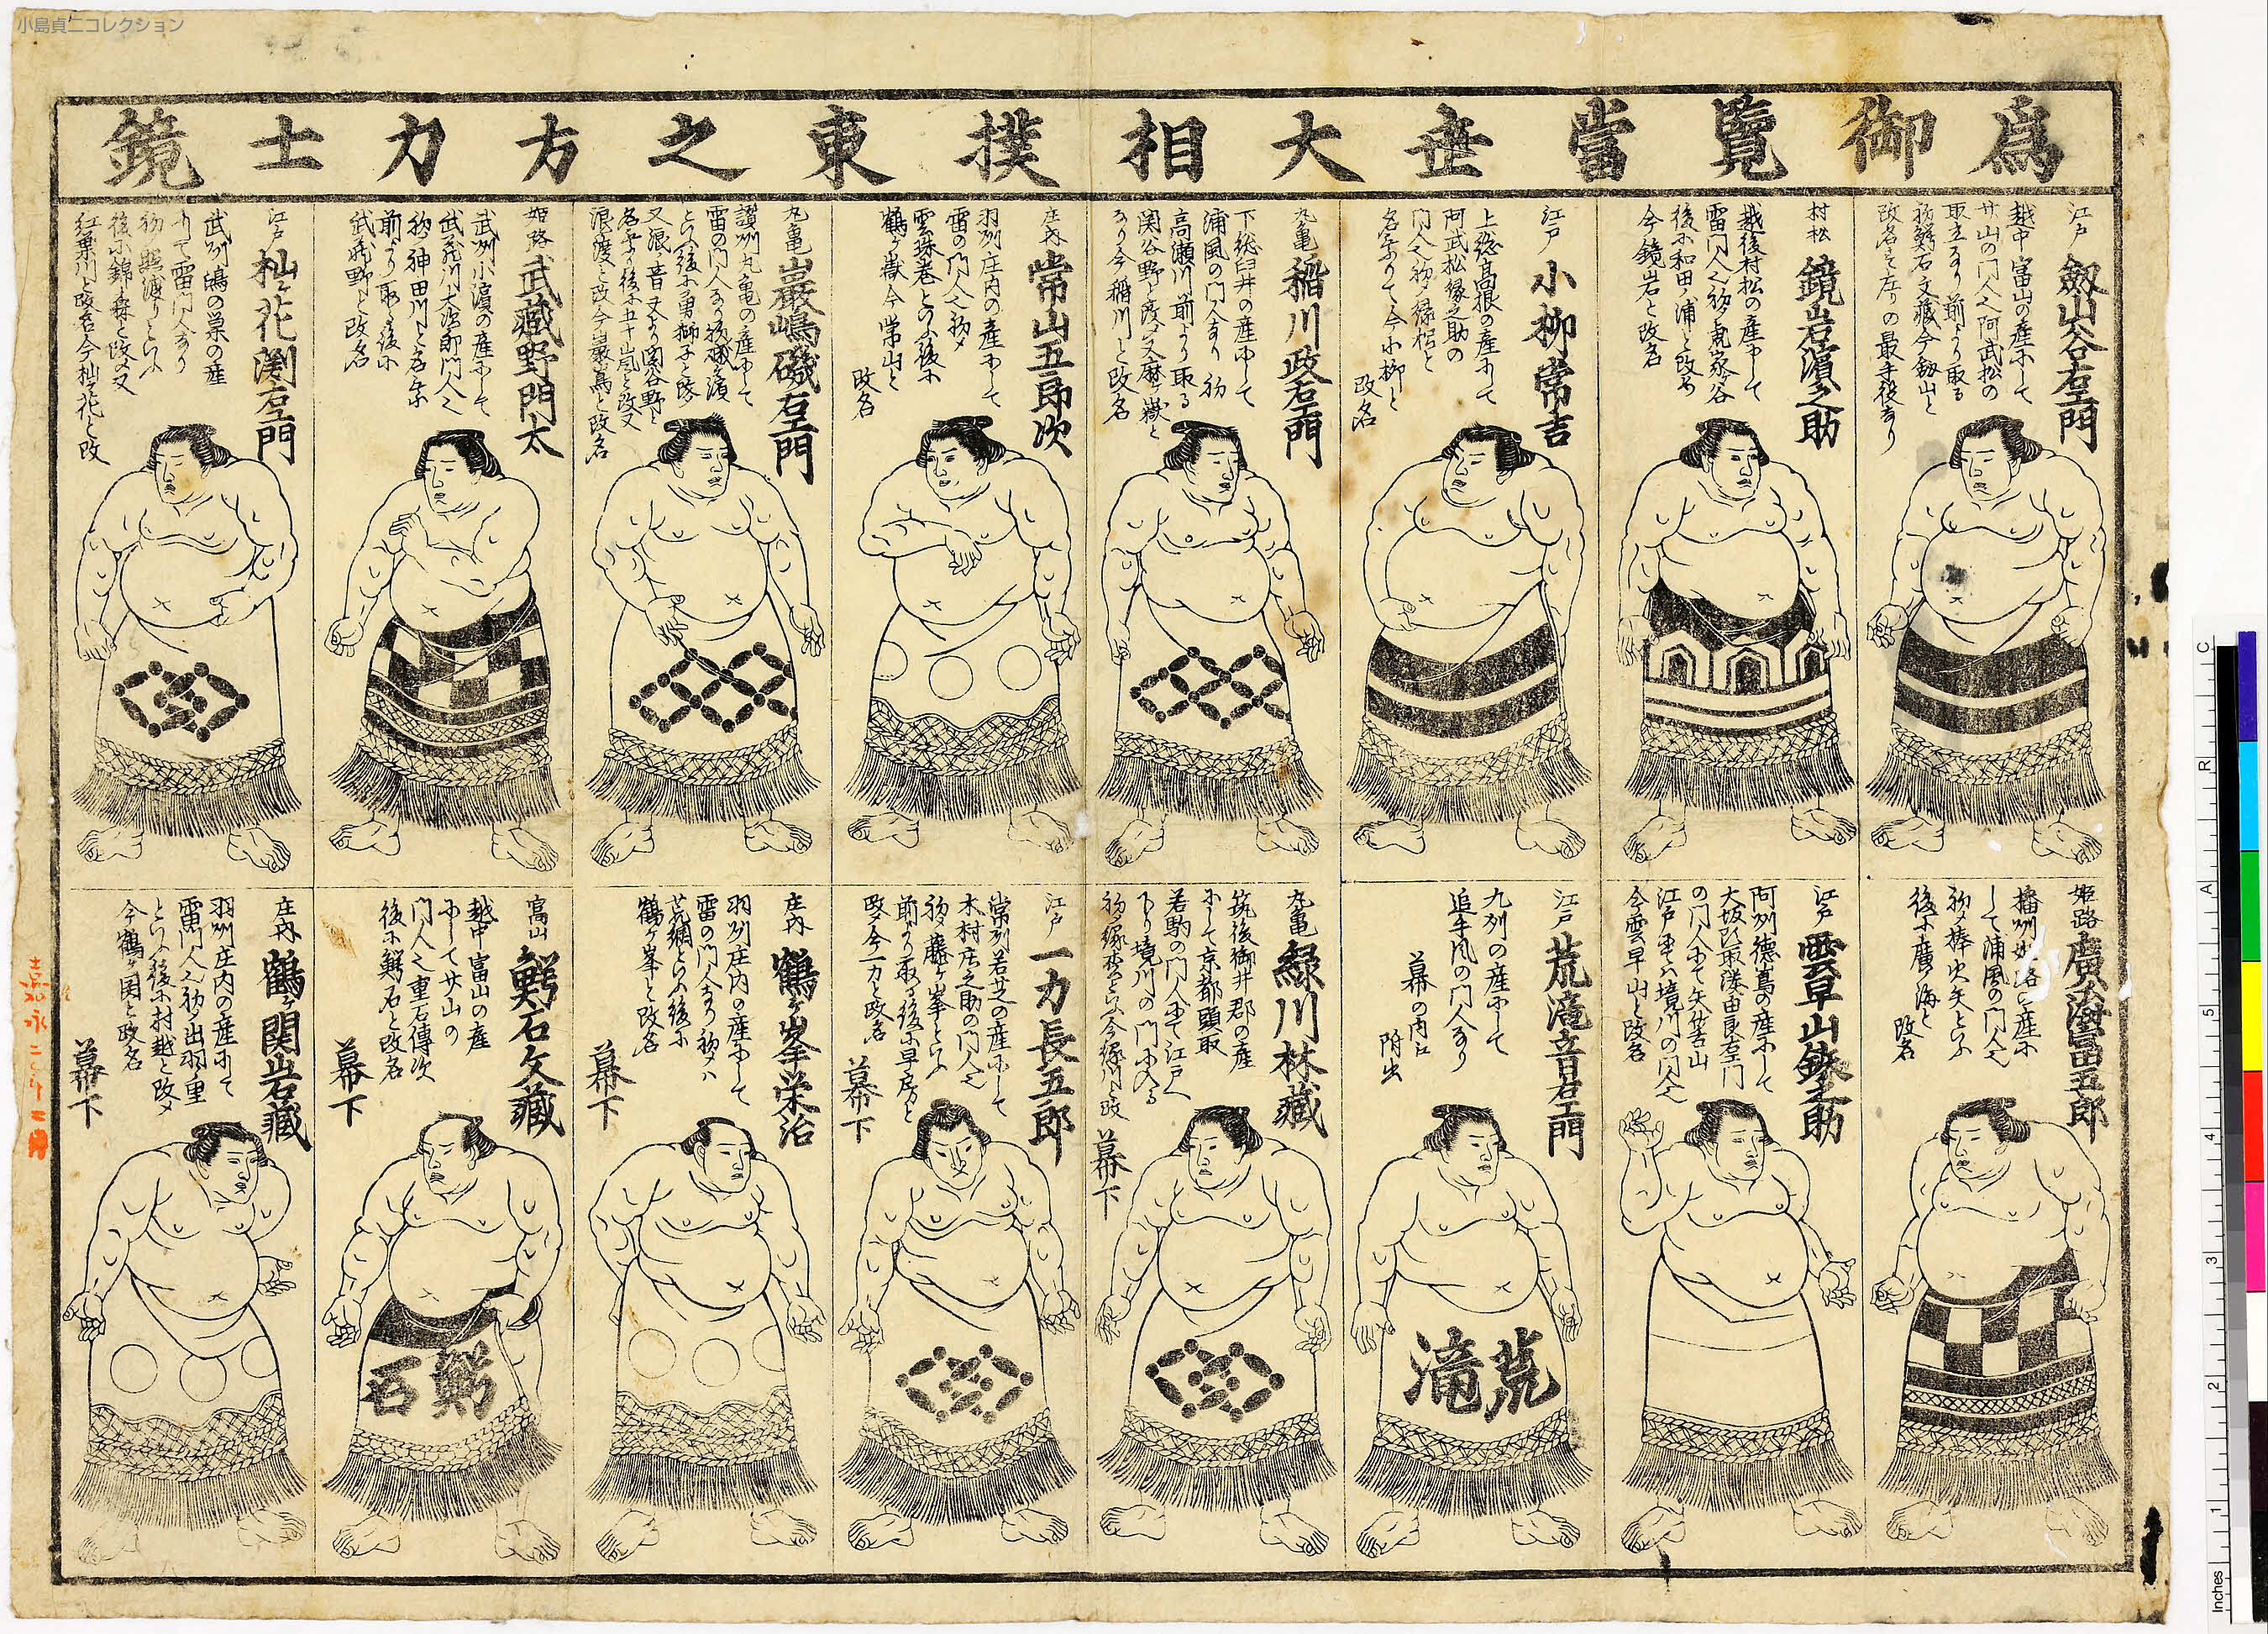 小島貞二コレクション
爲御覽當世大相撲東之方力士鏡
江戸
劔山谷右エ門
越中富山の産にして
廿山の門人也阿武松の
取立なり前より取る
初鰐石文蔵今劔山と
改名す庄りの最手役なり
村松
鏡岩濱之助
越後村松の産にして
雷門人也
後に和田ノ浦と改め
今鏡岩と改名
江戸
小柳常吉
上総高根の産にして
阿武松緑之助の
門人也初メ緑松と
名乗りて今小柳と
改名
丸亀
稲川政右エ門
下総臼井の産にして
浦風の門人なり初
高瀬川前より取る
関谷野と改メ天磨ヶ嶽と
なり今稲川と改名
庄内
常山五郎次
羽州庄内の産にして
雷の門人也初メ
雲珠巻といふ後に
鶴ヶ嶽今常山と
改名
丸亀
巌嶋磯右エ門
讃州丸亀の産にして
雷の門人なり
といふ後に勇獅子と改
浪渡と改今巌嶌と改名
姫路
武藏野門太
武州小濵の産にして
武藏川大次郎門人也
初メ神田川と名乗
前より取る後に
武蔵野と改名
江戸
杣ヶ花渕右エ門
武州鴻の巣の産
にて雷門人なり
後に錦ヶ森と改メ又
紅葉川と改名今杣ヶ花と改
姫路
廣ノ海冨五郎
播州姫路の産に
して浦風の門人也
初メ捧火矢といふ
後に廣ノ海と
改名
江戸
雲早山鉄之助
阿州徳嶌の産にして
大坂頭取湊由良右エ門
の門人にて矢筈山
江戸にては境川の門人也
今雲早山と改名
江戸
荒滝音右エ門
九州の産にして
追手風の門人なり
幕の内江
附出
丸亀
緑川林藏
筑後御井郡の産
にして京都頭取
若駒の門人にて江戸へ
下り境川の門に入る
幕下
江戸
一力長五郎
常州若芝の産にして
木村庄之助の門人也
初メ藤ヶ峯といふ
前より取る後に早房と
改メ今一力と改名
幕下
庄内
鶴ヶ峯栄治
羽州庄内の産にして
雷の門人なり初メハ
荒綱といふ後に
鶴ヶ峯と改名
幕下
富山
鰐石文藏
越中富山の産
にして廿山の
門人也重石傳次
後に鰐石と改名
幕下
庄内
鶴ヶ関岩藏
羽州庄内の産にて
雷門人也初メ出羽ノ里
といふ後に村越と改メ
今鶴ヶ関と改名
幕下
荒滝
鰐石
嘉永二年二月
Inches
1
2
3
4
5
C
R
A